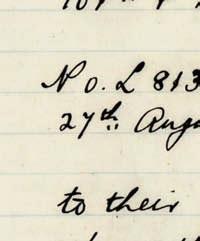 No. L 813
27th Augu
to their